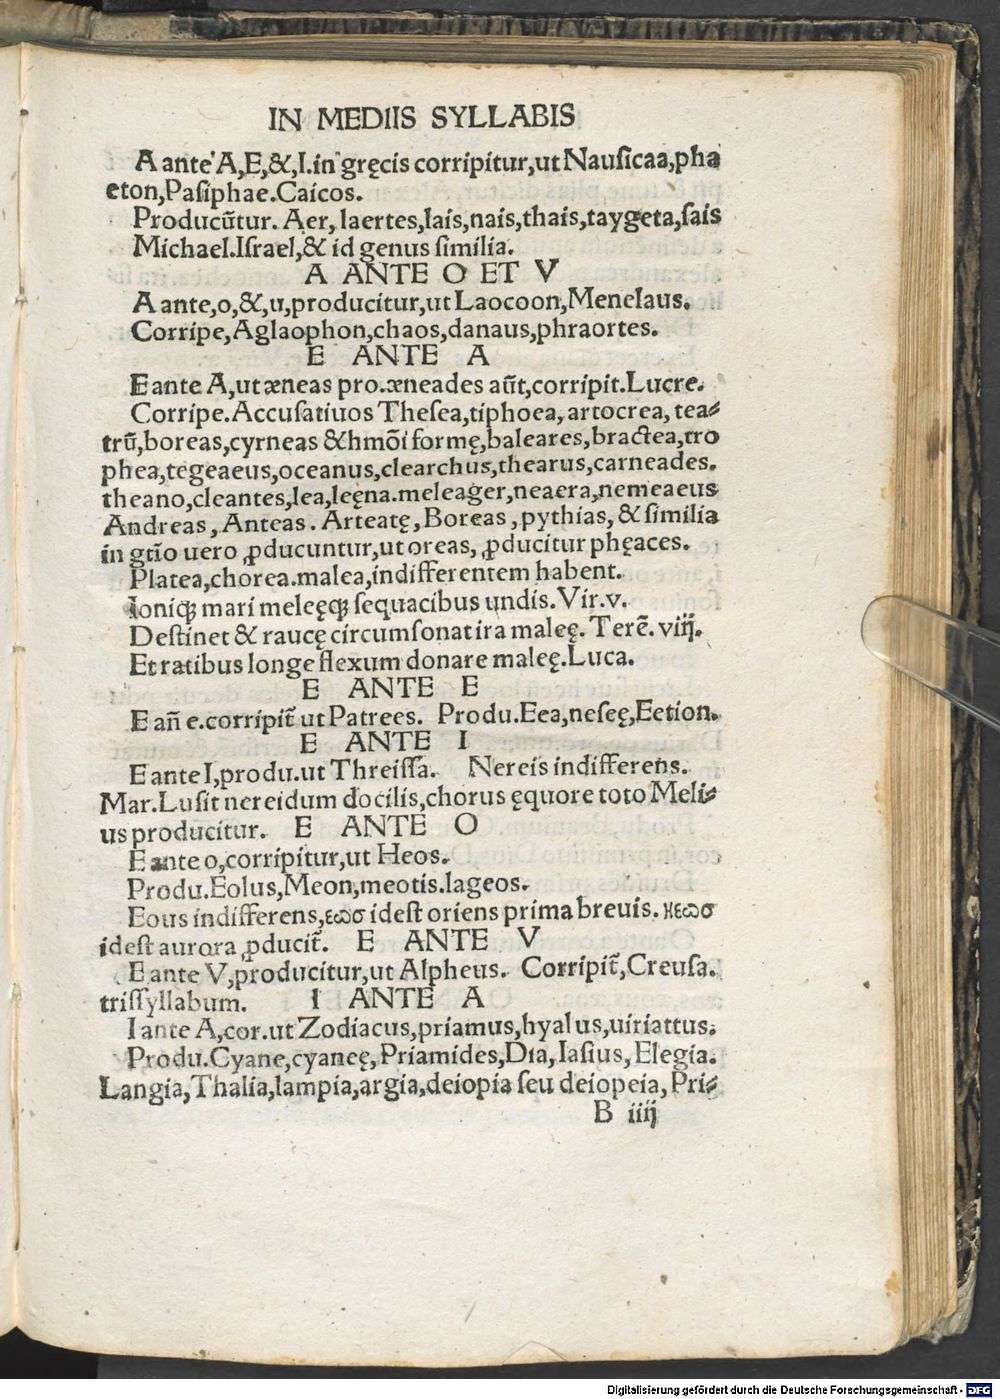 IN MEDIIS SYLLABIS
A ante A,E,&,I.in gręcis corripitur,ut Nausicaa,pha
eton,Pasiphae.Caicos.
Producūtur. Aer, laertes,lais,nais,thais,taygeta,sais
Michael.Israel,& id genus similia.
A ANTE O ET V
A ante,o,&,u,producitur,ut Laocoon,Menelaus.
Corripe,Aglaophon,chaos,danaus,phraortes.
E ANTE A
E ante A,ut æneas pro.æneades aūt,corripit.Lucre.
Corripe.Accusatiuos Thesea,tiphoea, artocrea, tea⸗
trū,boreas,cyrneas &hmōi formę,baleares,bractea,tro
phea,tegeaeus,oceanus,clearchus,thearus,carneades.
theano,cleantes,lea,leęna.meleager,neaera,nemeaeus
Andreas, Anteas. Arteatę, Boreas, pythias, & similia
in gtīo uero ꝓducuntur,ut oreas, ꝓducitur phęaces.
Platea,chorea.malea,indifferentem habent.
Ioniqꝫ mari meleęqꝫ sequacibus undis.Vir.v.
Destinet & raucę circumsonat ira maleę. Terē. viij.
Et ratibus longe flexum donare maleę.Luca.
E ANTE E
E añ e.corripit̄ ut Patrees. Produ.Eea,neseę,Eetion.
E ANTE I
E ante I,produ.ut Threissa. Nereis indifferens.
Mar.Lusit nereidum docilis,chorus ęquore toto Meli⸗
us producitur. E ANTE O
E ante o,corripitur,ut Heos.
Produ.Eolus,Meon,meotis.lageos.
Eous indifferens,εωσ idest oriens prima breuis. ηεωσ
idest aurora ꝓducit̄. E ANTE V
E ante V,producitur,ut Alpheus. Corripit̄,Creusa.
trissyllabum. I ANTE A
I ante A,cor.ut Zodiacus,priamus,hyalus,uiriattus.
Produ.Cyane,cyaneę, Priamides,Dia,Iasius,Elegia.
Langia,Thalia,lampia,argia,deiopia seu deiopeia, Pri⸗
B iiij
Digitalisierung gefördert durch die Deutsche Forschungsgemeinschaft - DFG